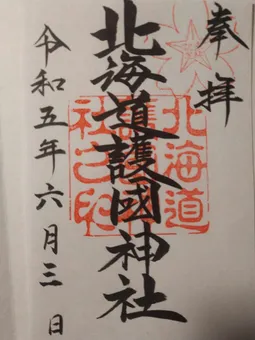 奉拝
北海道護國神社
令和五年六月三日
北海道
社之印